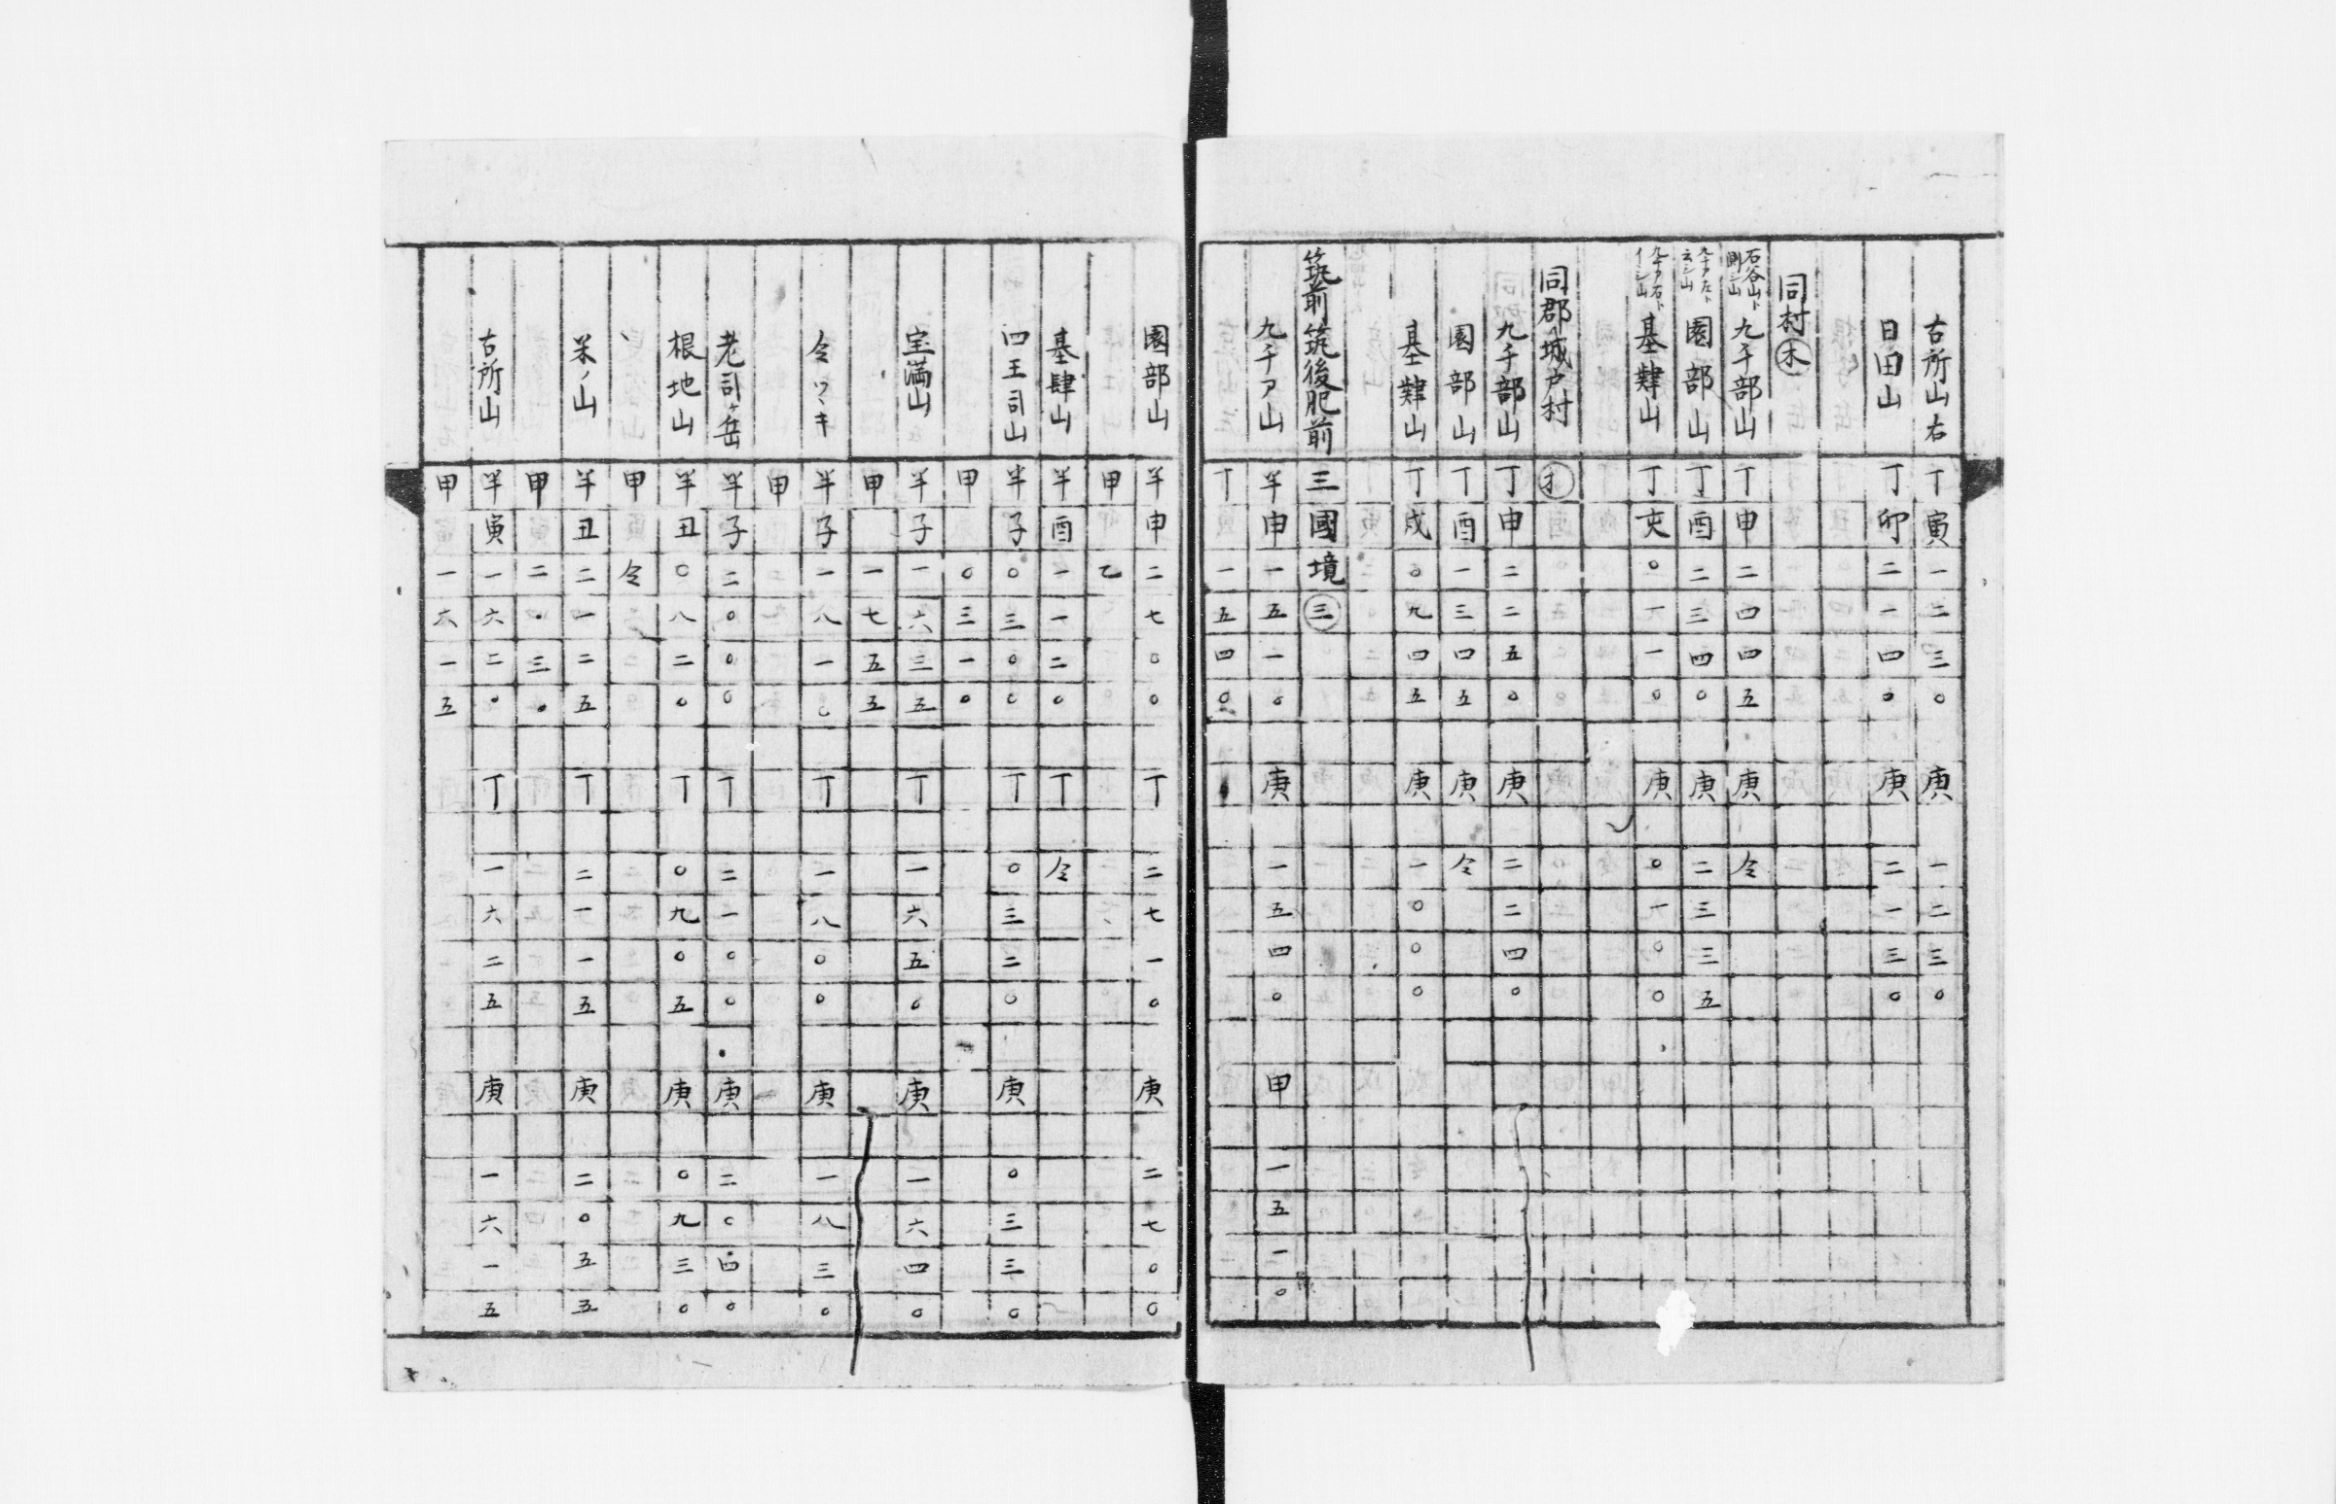 古所山右 丁寅一二三〇 庚一二三〇
日田山 丁卯二一四〇 庚二一三〇
同村㊍
石谷山ト
九千部山 丁申二四四五 庚仝
園部山 丁酉二三四〇 庚二三三五
基肄山 丁亥〇一一〇 庚〇一〇〇
同郡城戸村
九千部山 丁申二二五〇 庚二二四〇
園部山 丁酉一三四五 庚仝
基肄山 丁戌〇九四五 庚一〇〇〇
筑前筑後肥前三國境㊂
九千ア山 半申一五一〇 庚一五四〇 甲一五一〇
丁 一五四〇
園部山 半申二七〇〇 丁二七一〇 庚二七〇〇
甲 乙
基肄山 半酉一一二〇 丁仝
四王司山 半子〇三〇〇 丁〇三二〇 庚〇三三〇
甲 〇三一〇
宝満山 半子一六三五 丁一六五〇 庚一六四〇
甲 一七五五
仝ワキ 半子一八一〇 丁一八〇〇 庚一八三〇
甲
老司ヶ岳 半子二〇〇〇 丁二一〇〇 庚二〇四〇
根地山 半丑〇八二〇 丁〇九〇五 庚〇九三〇
甲 仝
米ノ山 半丑二一二五 丁二一一五 庚二〇五五
甲 二〇三〇
古所山 半寅一六二〇 丁一六二五 庚一六一五
甲 一六一五